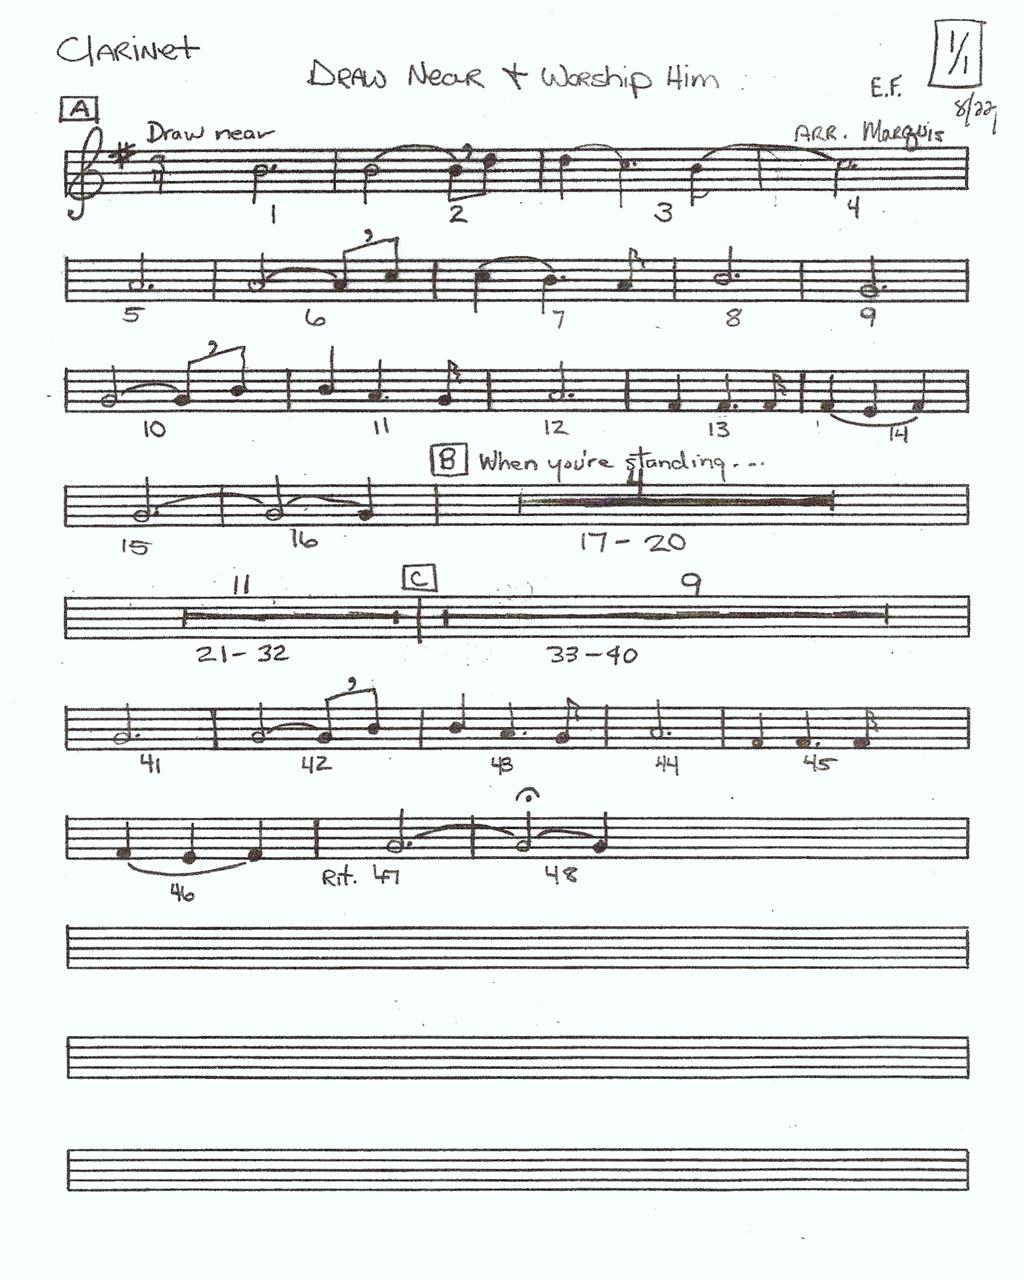 Clarinet
Draw Near + Worship Him
E.F.
1/1
8/22
A
Draw near
Arr. Marquis
1 2 3 4
5 6 7 8 9
10 11 12 13 14
B When you're standing...
4
15 16 17-20
11 C 9
21-32 33-40
41 42 43 44 45
46 Rit. 47 48